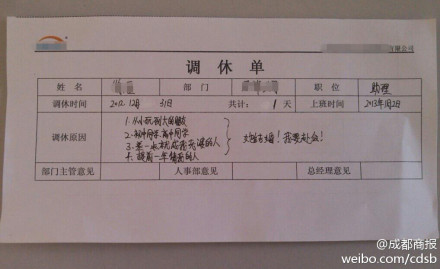 有限公司
调休单
姓名 部门 职位 助理
调休时间 2012 12月 31日 共计: 1 天 上班时间 2013年1月2日
调休原因
1. 从小玩到大的朋友
2. 初中同学、高中同学
3. 第一次就成为亮谱的人
4. 提前一年结婚的人
大婚! 我要赴宴!
部门主管意见 人事部意见 总经理意见
@成都商报
weibo.com/cdsb